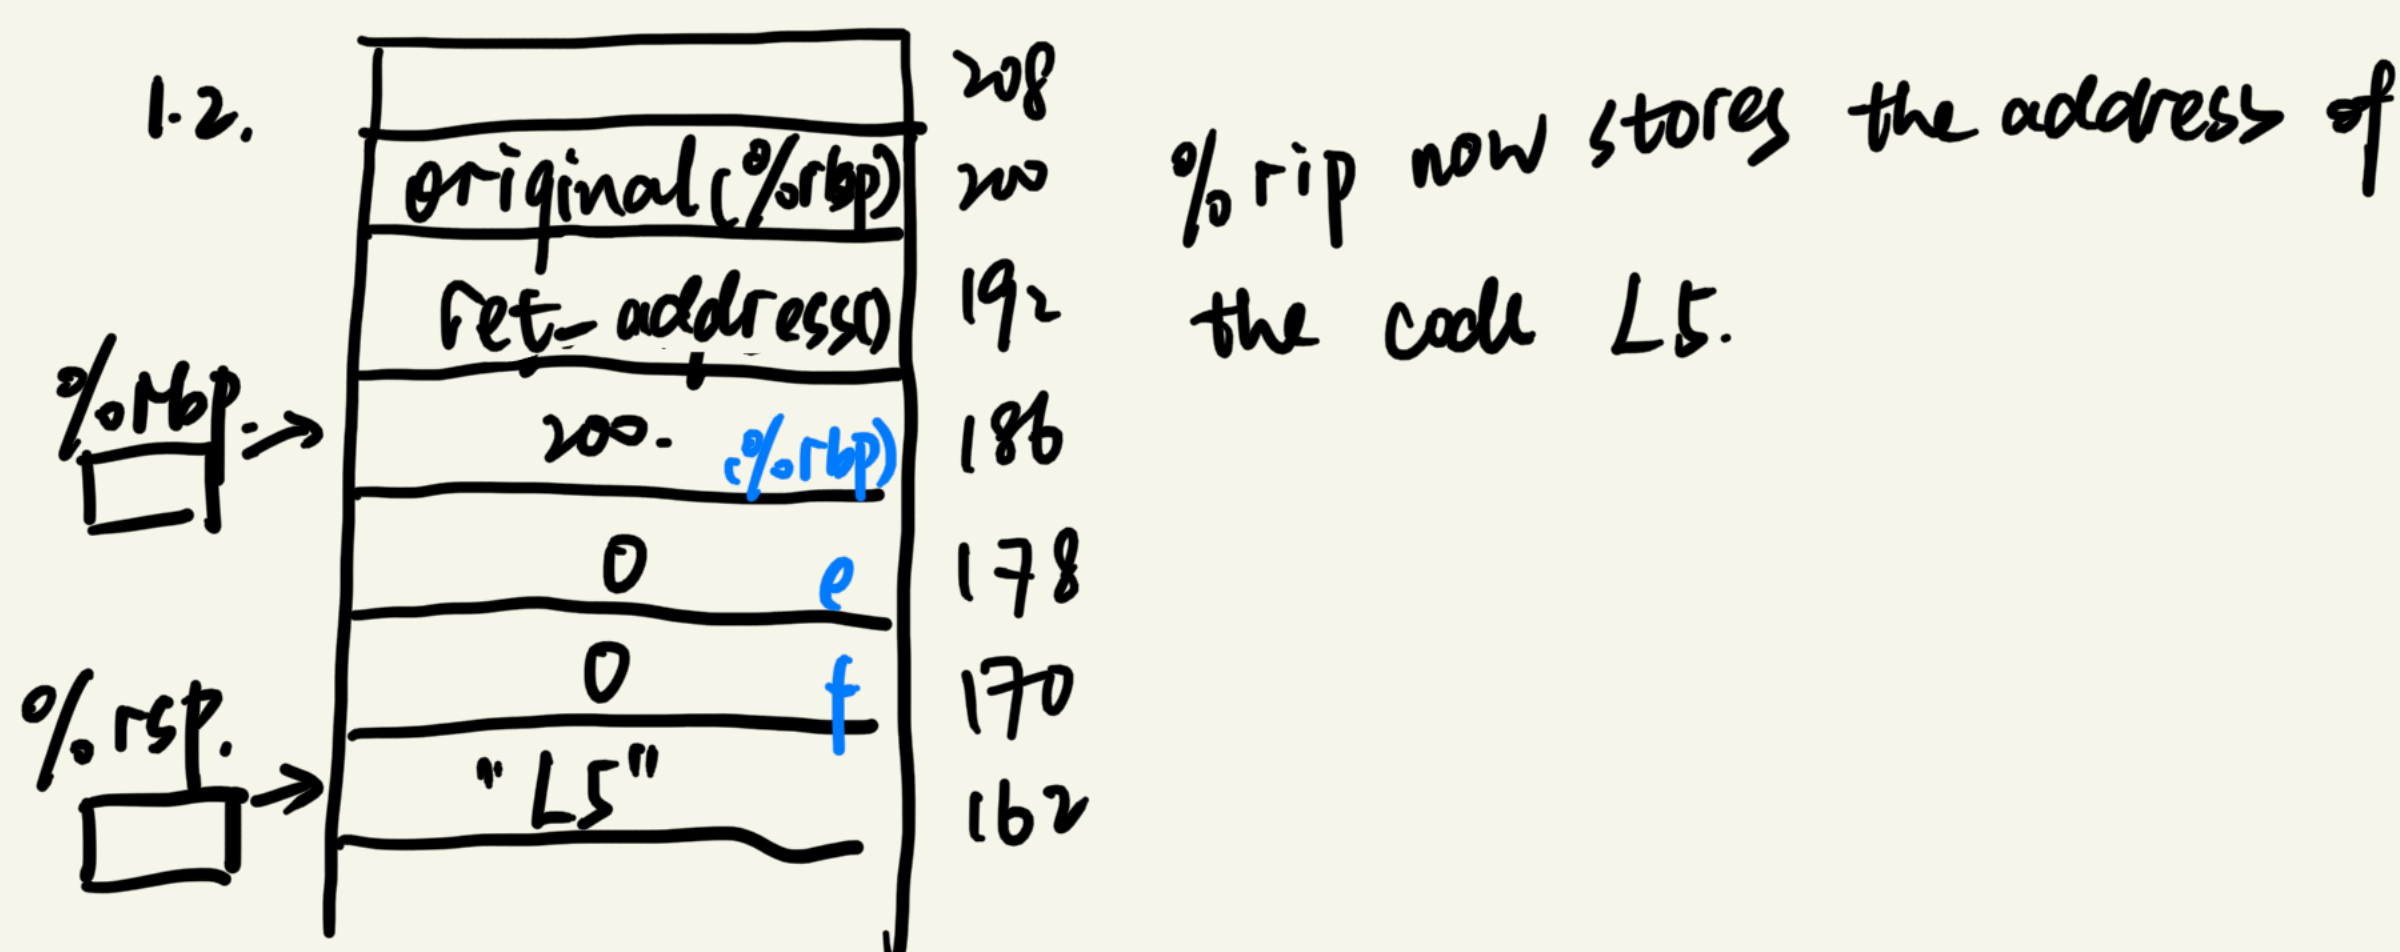 1.2.
208
original (%rbp) 200
ret_address() 192
%rbp
200. (%rbp) 186
0 e 178
0 f 170
%rsp.
"L5" 162
%rip now stores the address of
the code L5.